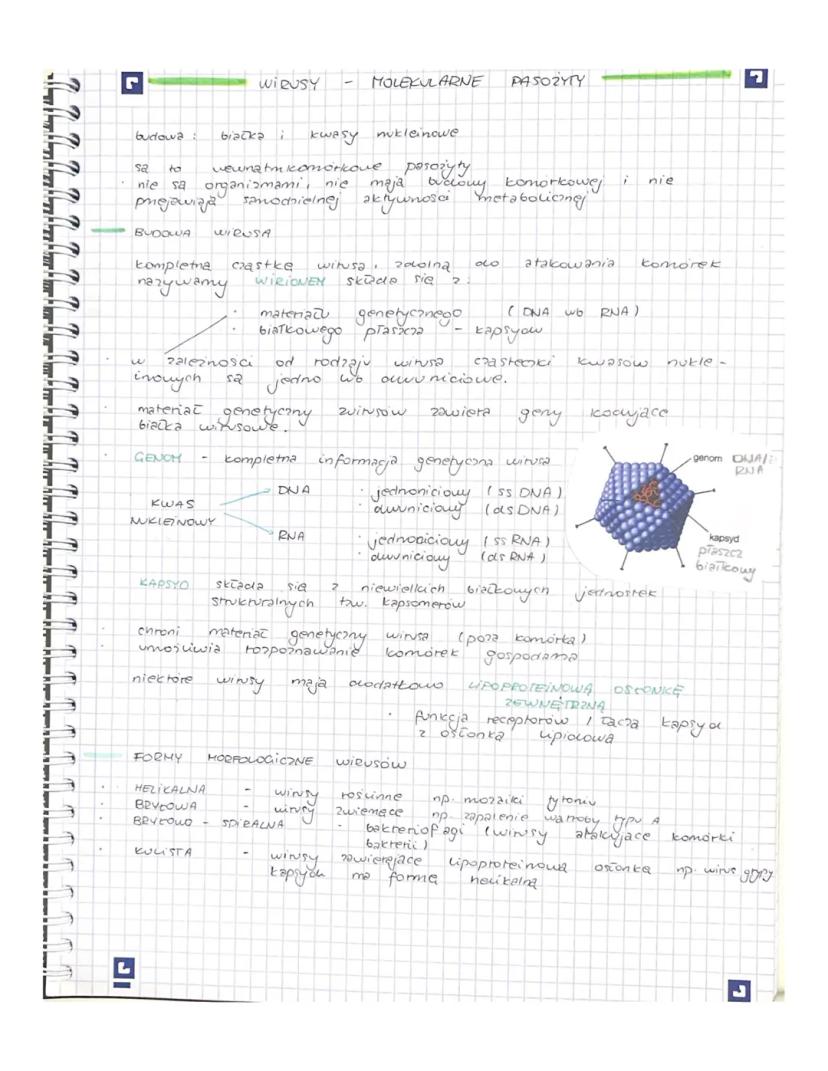 WIRUSY - MOLEKULARNE PASOŻYTY
budowa : białka i kwasy nukleinowe
są to wewnątrzkomórkowe pasożyty
nie są organizmami, nie mają budowy komórkowej i nie
przejawiają samodzielnej aktywności metabolicznej
BUDOWA WIRUSA
kompletną cząstkę wirusa, zdolną do atakowania komórek
nazywamy WIRIONEM składa się z:
· materiału genetycznego (DNA lub RNA)
· białkowego płaszcza - kapsydu
w zależności od rodzaju wirusa cząsteczki kwasów nukle-
inowych są jedno lub dwuniciowe.
materiał genetyczny wirusów zawiera geny kodujące
białka wirusowe.
GENOM - kompletna informacja genetyczna wirusa
genom DNA/
RNA
DNA · jednoniciowy (ss DNA)
KWAS · dwuniciowy (ds DNA)
NUKLEINOWY
RNA · jednoniciowy (ss RNA)
· dwuniciowy (ds RNA)
kapsyd
płaszcz
białkowy
KAPSYD składa się z niewielkich białkowych jednostek
strukturalnych tzw. kapsomerów
chroni materiał genetyczny wirusa (poza komórką)
umożliwia rozpoznawanie komórek gospodarza
niektóre wirusy mają dodatkowo LIPOPROTEINOWĄ OSŁONKĘ
ZEWNĘTRZNĄ
· funkcja receptorów / łączą kapsyd
z osłonką lipidową
FORMY MORFOLOGICZNE WIRUSÓW
· HELIKALNA - wirusy roślinne np. mozaiki tytoniu
· BRYŁOWA - wirusy zwierzęce np. zapalenie wątroby typu A
· BRYŁOWO - SPIRALNA - bakteriofagi (wirusy atakujące komórki
bakterii)
· KULISTA - wirusy zawierające lipoproteinową osłonkę np. wirus grypy
kapsyd ma formę helikalną